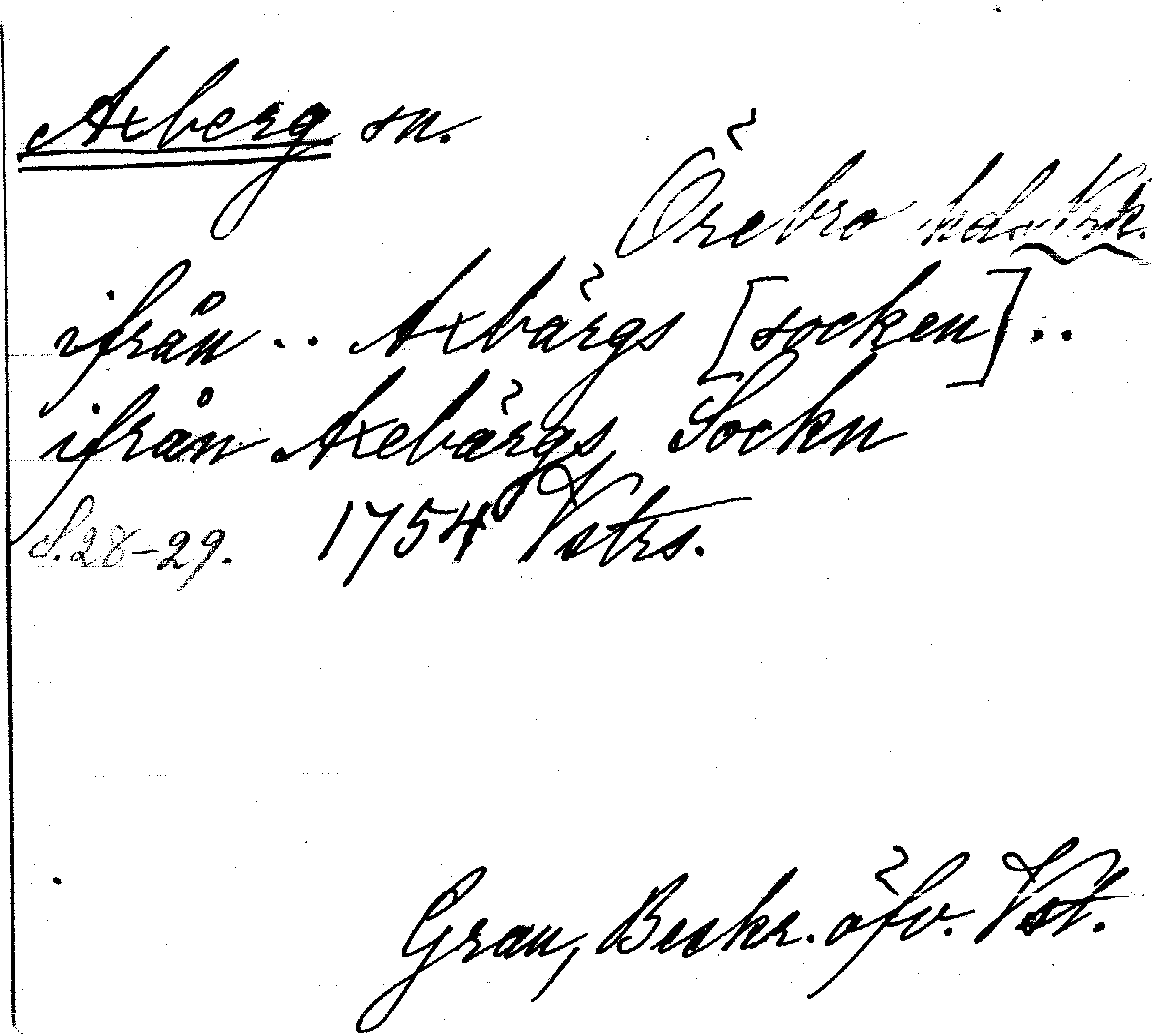 Axberg sn.
Örebro hd. Nrk.
ifrån .. Axbärgs [socken] ..
ifrån Axebärgs Sockn
S. 28-29. 1754 Vstrs.
Grau, Beskr. öfv. Vst.